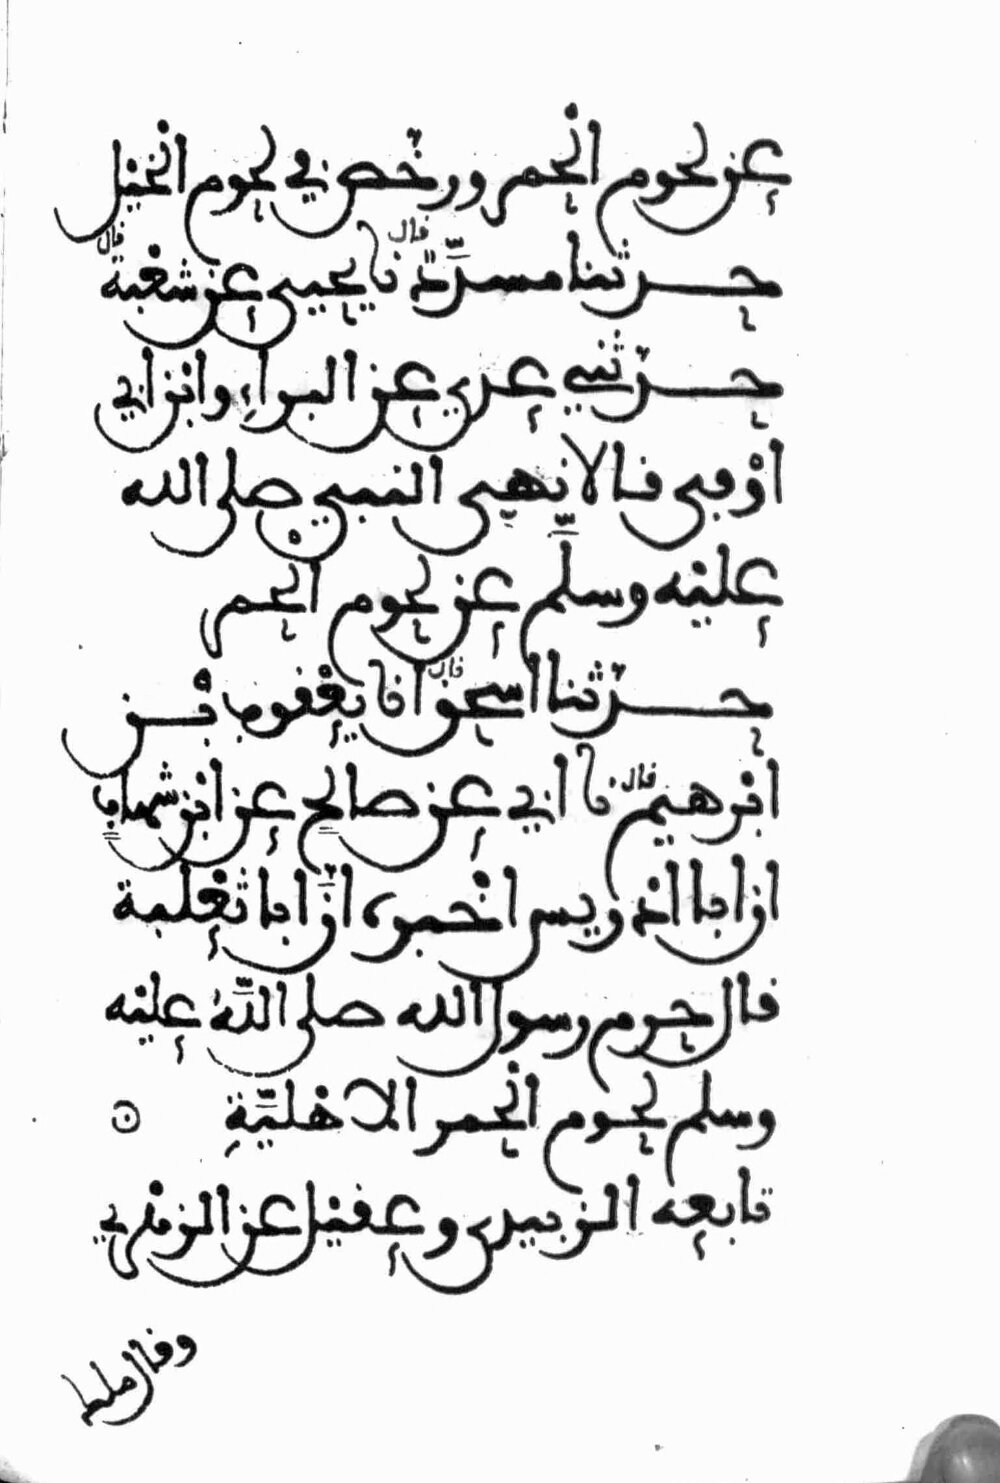 عن لحوم الحمر ورخص في لحوم الخيل
حدثنا مسدد قال نا يحيى عن شعبة قال
حدثني عدي عن البراء وابن ابي
اوفى قالا نهى النبي صلى الله
عليه وسلم عن لحوم الحمر
حدثنا اسحق قال انا يعقوب بن
ابرهيم قال نا ابي عن صالح عن ابن شهاب
ان ابا ادريس اخبره ان ابا ثعلبة
قال حرم رسول الله صلى الله عليه
وسلم لحوم الحمر الاهلية
تابعه الزبيدي وعقيل عن الزهري
وقال ملك